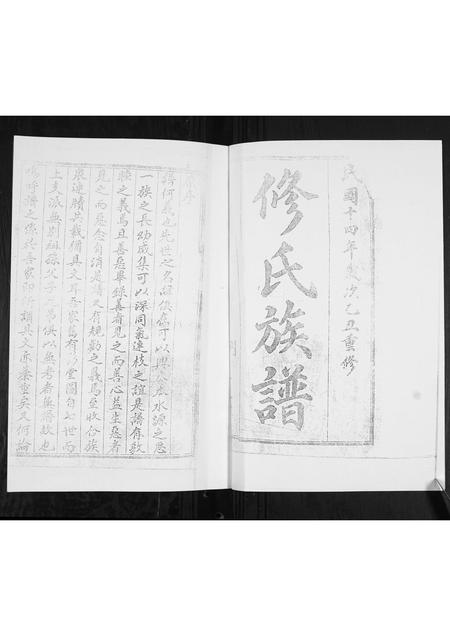 民國十四年歲次乙丑重修
修氏族譜
序
譜何為也先世之名諱俱焉可以興木水源之思
一族之長幼咸集可以深同氣連枝之誼是譜有敦
睦之義焉且善惡畢錄善者見之而善心益生惡者
見之而惡念自消是譜又有規勸之義焉至收合族
眾連牘共載備具文耳吾家舊有 堂圖自七世而
上支派無別祖孫父子兄弟俱以無考者無譜故也
嗚呼譜之係於吾家即所謂具文亦兼重矣又何論